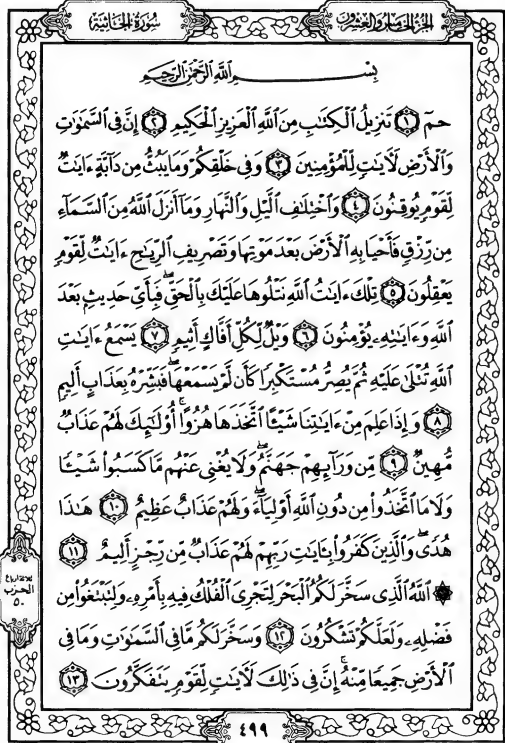 الجزء الخامس والعشرون سورة الجاثية
بِسْمِ اللَّهِ الرَّحْمَٰنِ الرَّحِيمِ
حمٓ ١ تَنزِيلُ الْكِتَٰبِ مِنَ اللَّهِ الْعَزِيزِ الْحَكِيمِ ٢ إِنَّ فِي السَّمَٰوَٰتِ
وَالْأَرْضِ لَءَايَٰتٍ لِّلْمُؤْمِنِينَ ٣ وَفِي خَلْقِكُمْ وَمَا يَبُثُّ مِن دَآبَّةٍ ءَايَٰتٌ
لِّقَوْمٍ يُوقِنُونَ ٤ وَاخْتِلَٰفِ الَّيْلِ وَالنَّهَارِ وَمَآ أَنزَلَ اللَّهُ مِنَ السَّمَآءِ
مِن رِّزْقٍ فَأَحْيَا بِهِ الْأَرْضَ بَعْدَ مَوْتِهَا وَتَصْرِيفِ الرِّيَٰحِ ءَايَٰتٌ لِّقَوْمٍ
يَعْقِلُونَ ٥ تِلْكَ ءَايَٰتُ اللَّهِ نَتْلُوهَا عَلَيْكَ بِالْحَقِّ ۖ فَبِأَيِّ حَدِيثٍۭ بَعْدَ
اللَّهِ وَءَايَٰتِهِۦ يُؤْمِنُونَ ٦ وَيْلٌ لِّكُلِّ أَفَّاكٍ أَثِيمٍ ٧ يَسْمَعُ ءَايَٰتِ
اللَّهِ تُتْلَىٰ عَلَيْهِ ثُمَّ يُصِرُّ مُسْتَكْبِرًا كَأَن لَّمْ يَسْمَعْهَا ۖ فَبَشِّرْهُ بِعَذَابٍ أَلِيمٍ
٨ وَإِذَا عَلِمَ مِنْ ءَايَٰتِنَا شَيْـًٔا اتَّخَذَهَا هُزُوًا ۚ أُو۟لَٰٓئِكَ لَهُمْ عَذَابٌ
مُّهِينٌ ٩ مِّن وَرَآئِهِمْ جَهَنَّمُ ۖ وَلَا يُغْنِي عَنْهُم مَّا كَسَبُوا۟ شَيْـًٔا
وَلَا مَا اتَّخَذُوا۟ مِن دُونِ اللَّهِ أَوْلِيَآءَ ۖ وَلَهُمْ عَذَابٌ عَظِيمٌ ١٠ هَٰذَا
هُدًى ۖ وَالَّذِينَ كَفَرُوا۟ بِـَٔايَٰتِ رَبِّهِمْ لَهُمْ عَذَابٌ مِّن رِّجْزٍ أَلِيمٌ ١١
۞ اللَّهُ الَّذِي سَخَّرَ لَكُمُ الْبَحْرَ لِتَجْرِيَ الْفُلْكُ فِيهِ بِأَمْرِهِۦ وَلِتَبْتَغُوا۟ مِن
فَضْلِهِۦ وَلَعَلَّكُمْ تَشْكُرُونَ ١٢ وَسَخَّرَ لَكُم مَّا فِي السَّمَٰوَٰتِ وَمَا فِي
الْأَرْضِ جَمِيعًا مِّنْهُ ۚ إِنَّ فِي ذَٰلِكَ لَءَايَٰتٍ لِّقَوْمٍ يَتَفَكَّرُونَ ١٣
ثلاثة أرباع
الحزب
٥٠
٤٩٩